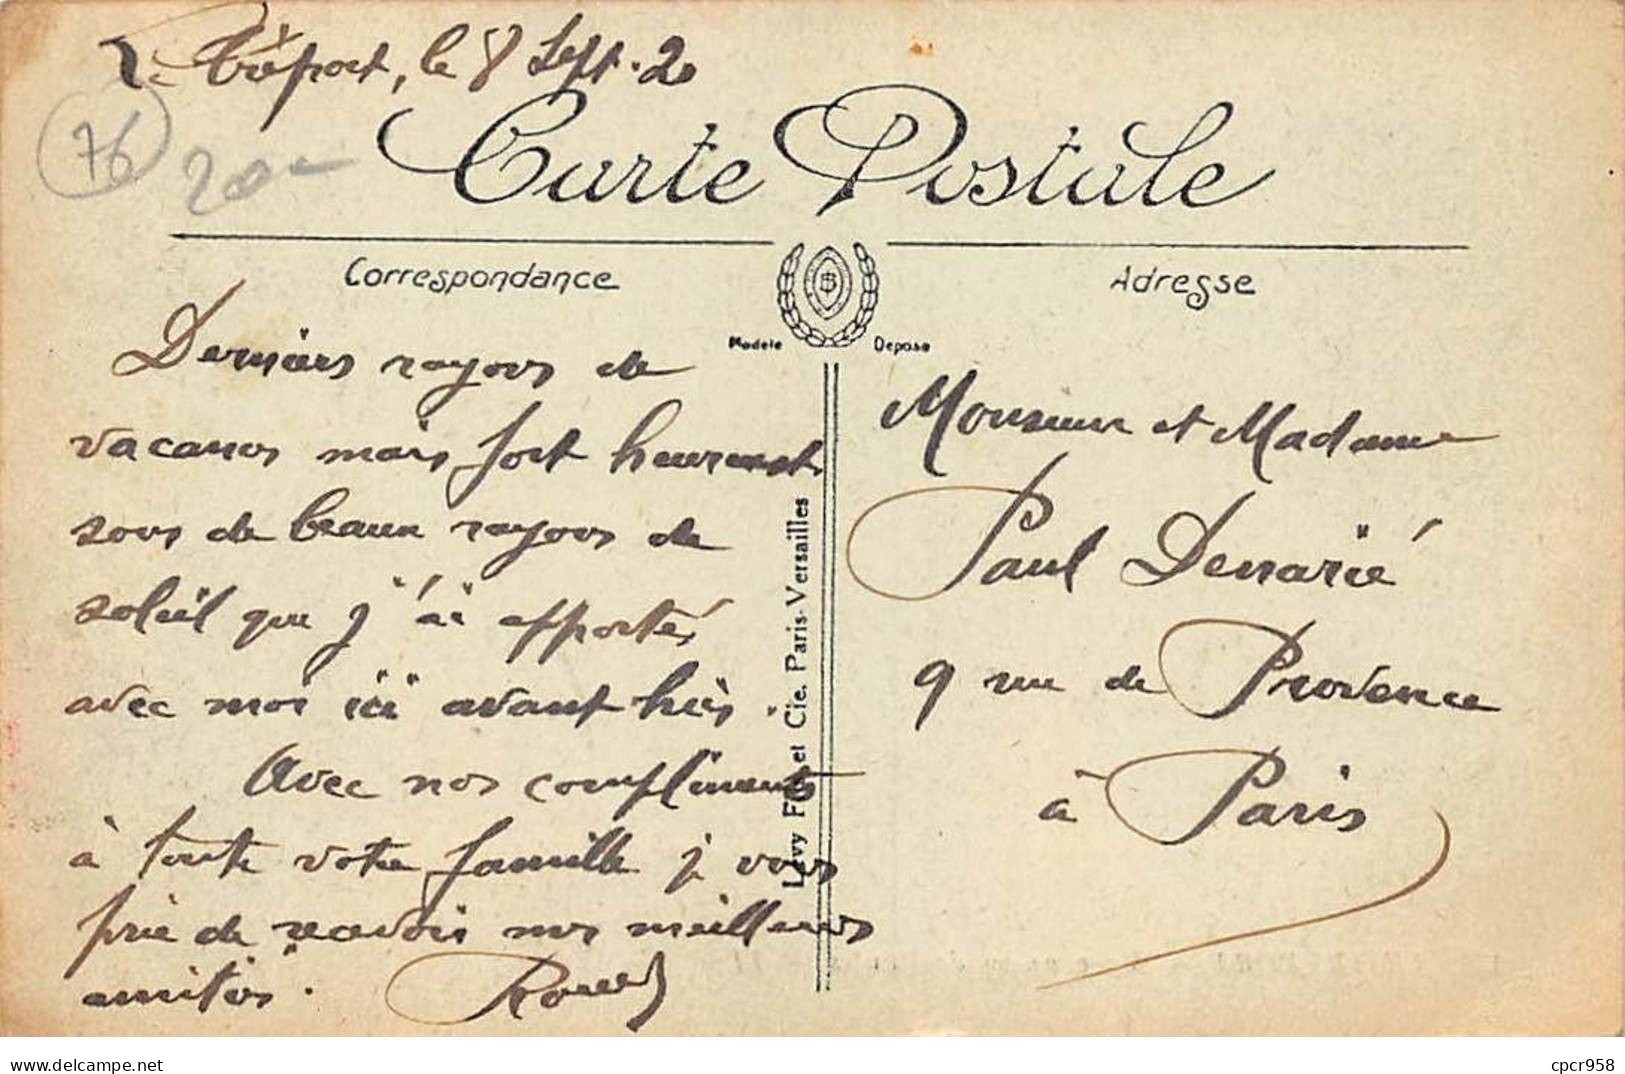 Le Tréport, le 8 Sept. 20
76
20-
Carte Postale
Correspondance
Adresse
Modèle Déposé
Derniers rayons de
vacances mais fort heureust.
sous de beaux rayons de
soleil que j'ai apportés
avec moi ici avant hier.
Avec nos compliments
à toute votre famille je vous
prie de recevoir nos meilleures
amitiés.
Lévy Fils et Cie. Paris-Versailles
Monsieur et Madame
Paul Denarié
9 rue de Provence
à Paris
delcampe.net
cpcr958